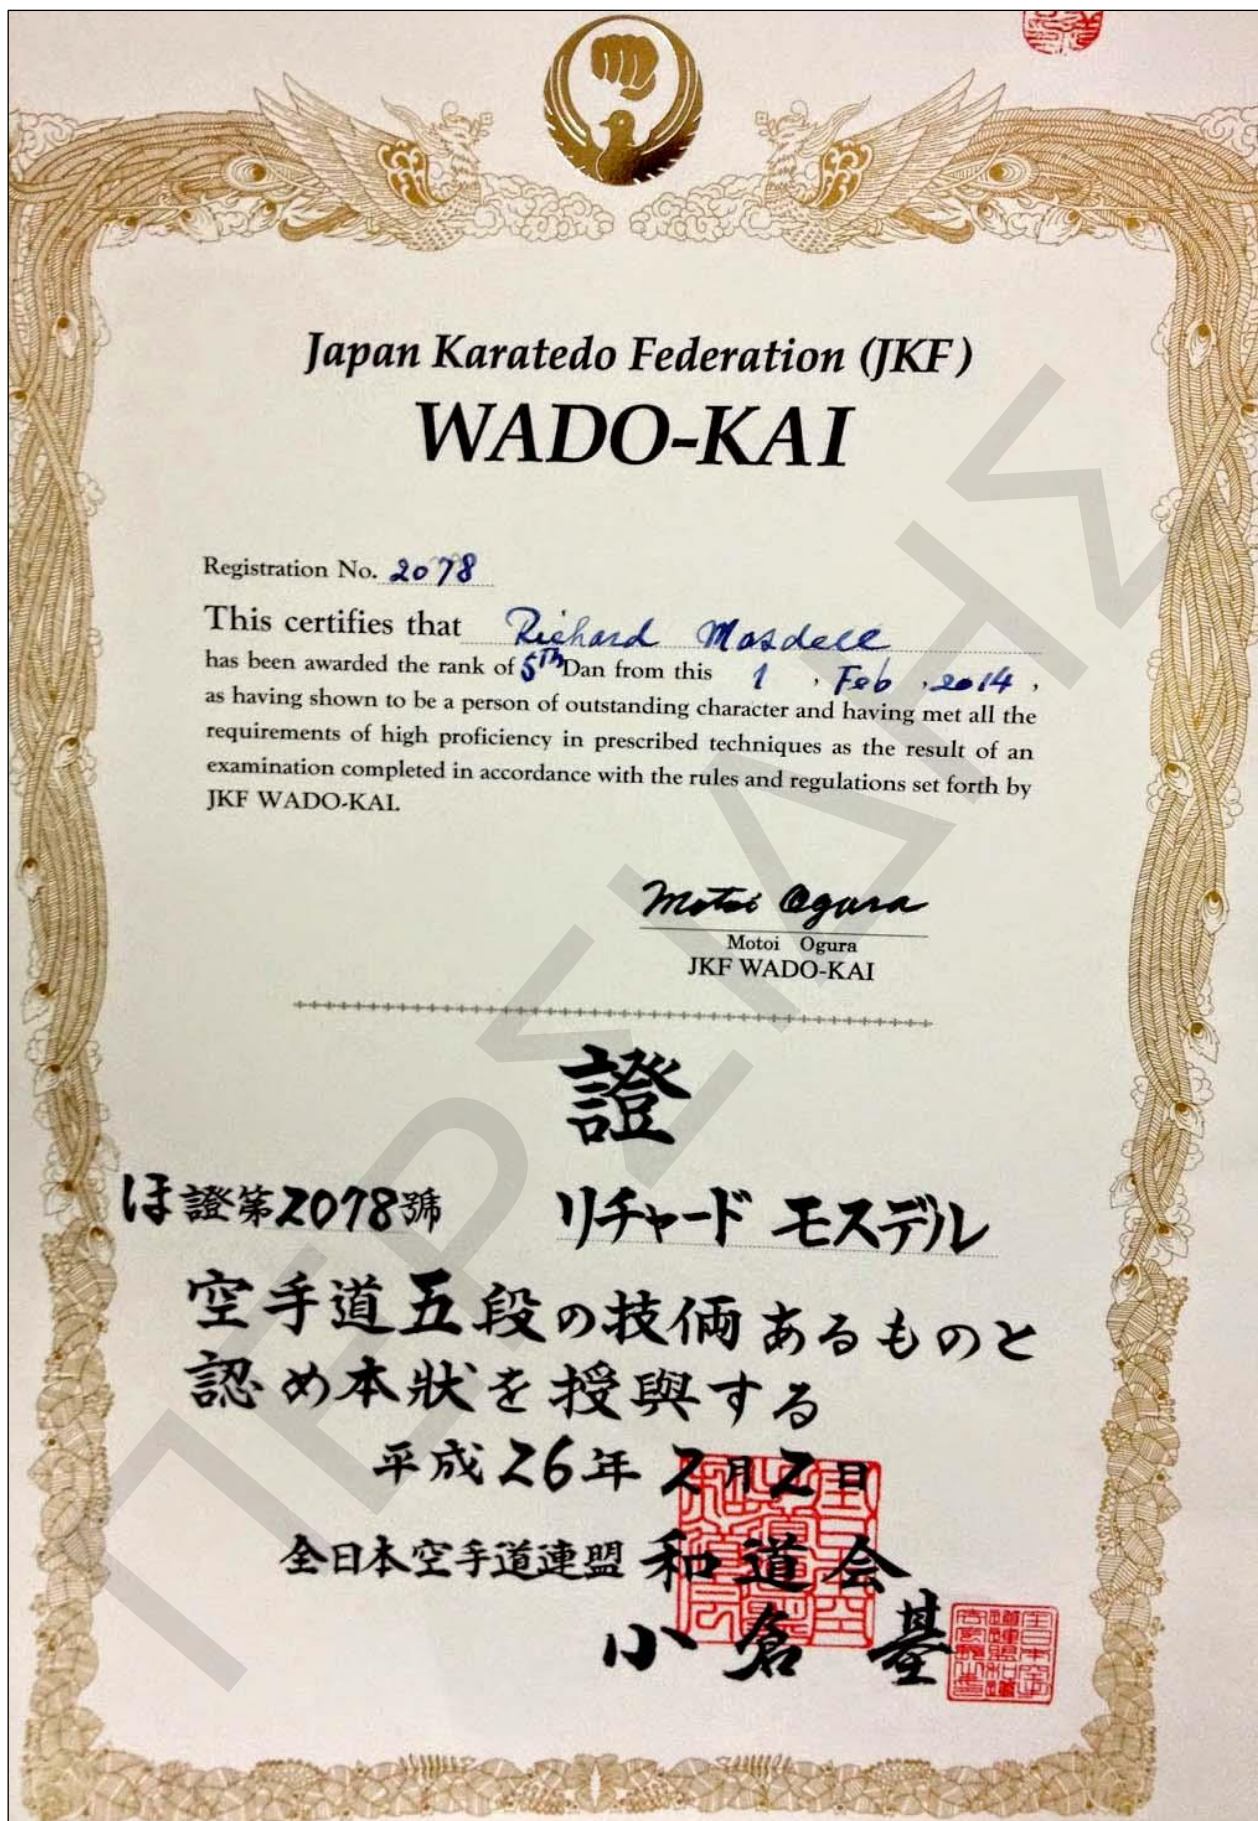 Japan Karatedo Federation (JKF)
WADO-KAI
Registration No. 2078
This certifies that Richard Mosdell
has been awarded the rank of 5TH Dan from this 1 , Feb , 2014 ,
as having shown to be a person of outstanding character and having met all the
requirements of high proficiency in prescribed techniques as the result of an
examination completed in accordance with the rules and regulations set forth by
JKF WADO-KAI.
Motoi Ogura
Motoi Ogura
JKF WADO-KAI
證
ほ證第2078號 リチャード モスデル
空手道五段の技倆あるものと
認め本狀を授與する
平成26年2月2日
全日本空手道連盟 和道会
小倉 基
ΠΕΡΣΙΔΗΣ